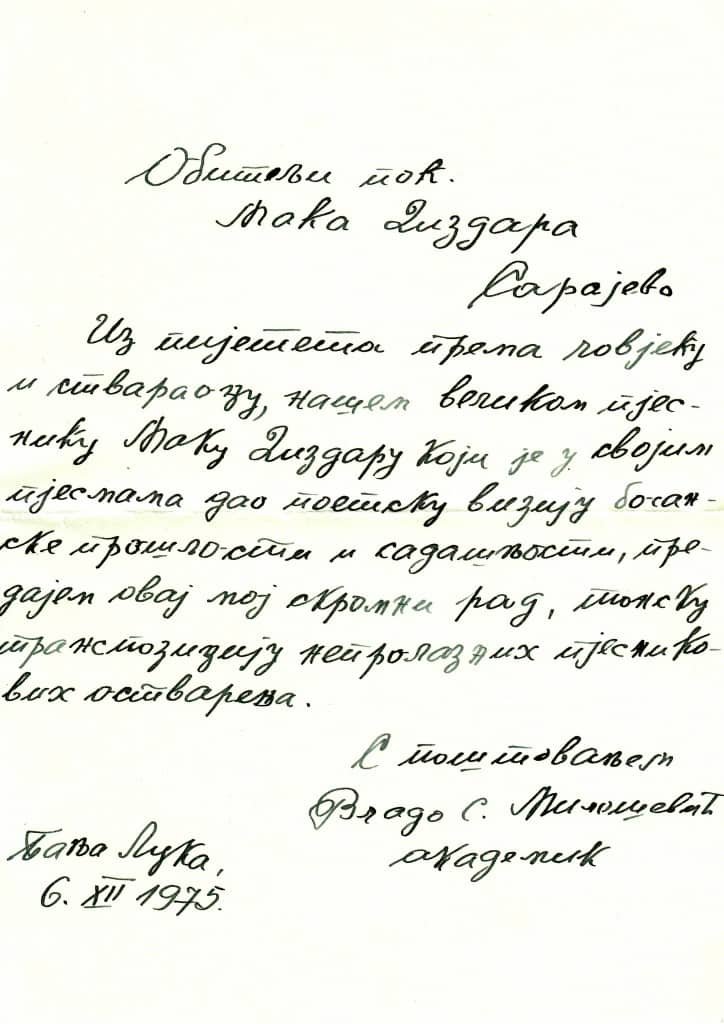 Обитељи пок.
Мака Диздара
Сарајево
Из пијетета према човјеку
и ствараоцу, нашем великом пјес-
нику Маку Диздару који је у својим
пјесмама дао поетску визију босан-
ске прошлости и садашњости, пре-
дајем овај мој скромни рад, тонску
транспозицију непролазних пјеснико-
вих остварења.
С поштовањем
Владо С. Милошевић
академик
Бања Лука,
6. XII 1975.